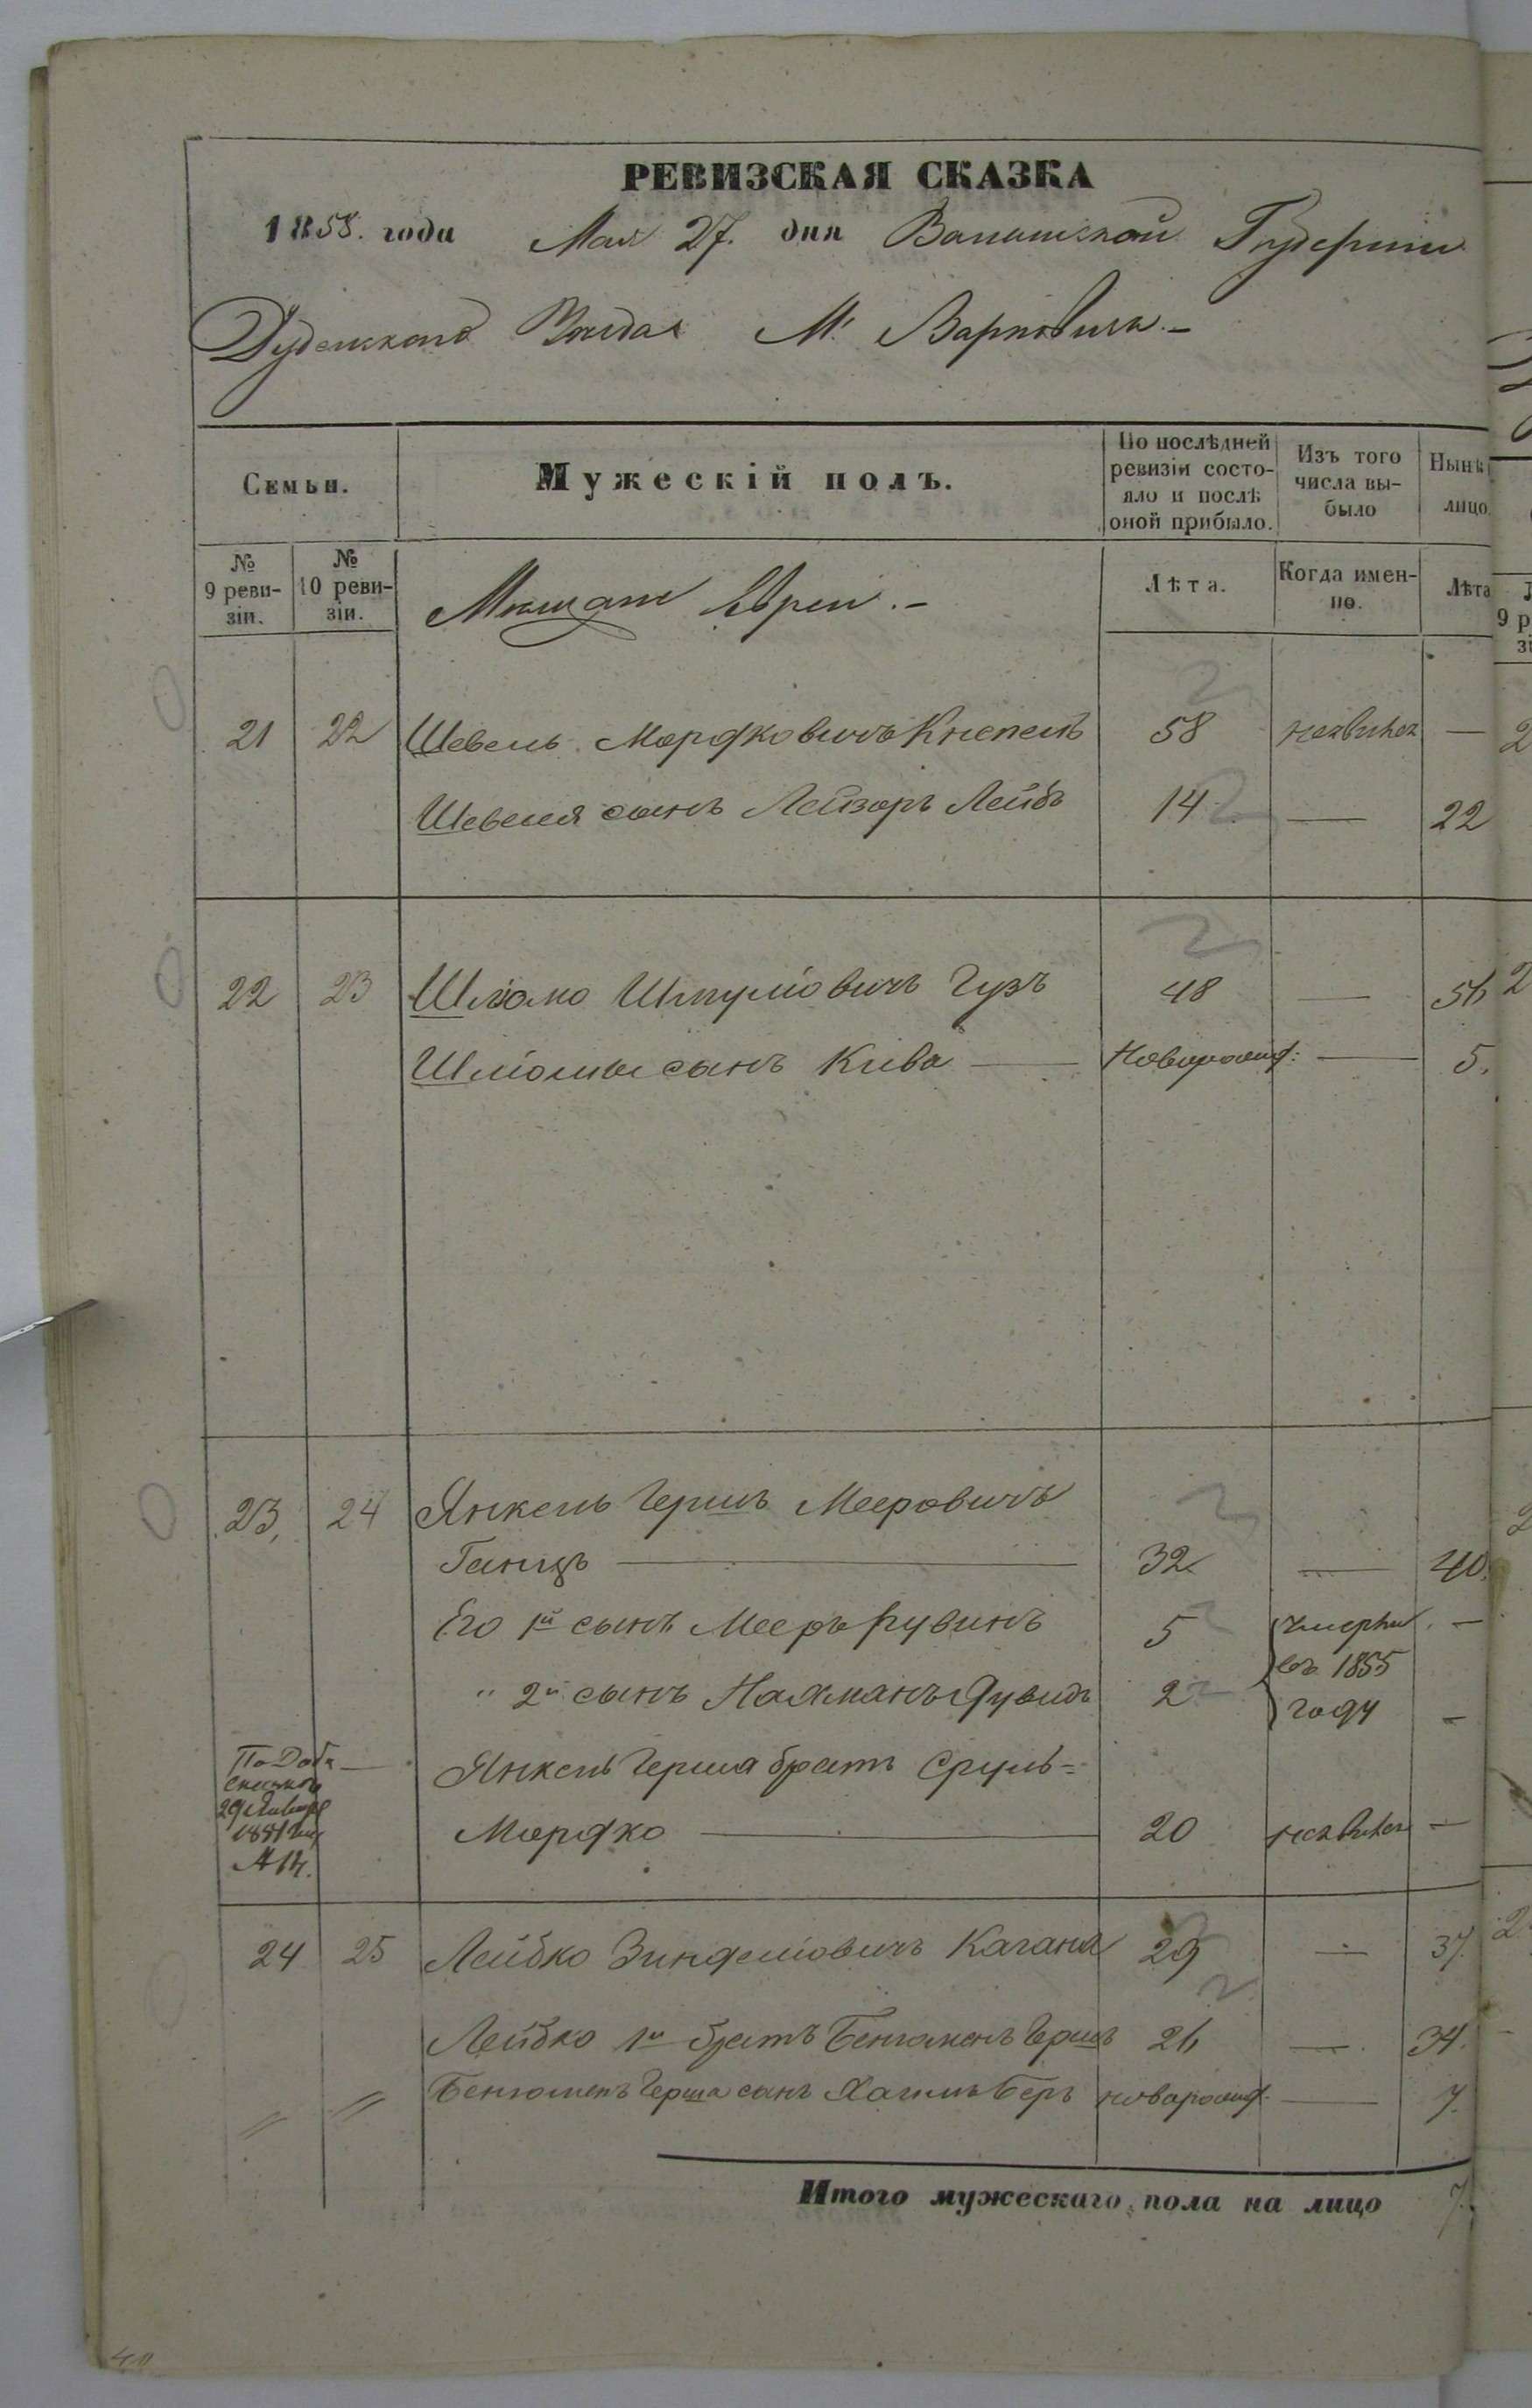 РЕВИЗСКАЯ СКАЗКА
1858. года Мая 27. дня Волынской Губернии
Дубенскаго Уѣзда М. Варковичь. –
Семьи. Мужескій полъ. По послѣдней ревизіи состо- яло и послѣ оной прибыло. Изъ того числа вы- было Нынѣ лицо.
№ 9 реви- зіи. № 10 реви- зіи. Мѣщане Евреи. – Лѣта. Когда имен- но. Лѣта
21 22 Шевель Мордковичъ 58 —
Шевеля сынъ Лейзоръ Лейбъ 14 — 22
22 23 Шліомо Шмуліовичъ Гузъ 48 — 56
Шліомы сынъ Кива — Новорожд: — 5.
23, 24 Янкель Гершъ Мееровичъ
Ганцъ — 32 — 40.
Его 1й сынъ Мееръ Рувинъ 5 умерли —
въ 1855
„ 2й сынъ Нахманъ Дувидъ 2 году –
По Доба
Янкель Герша братъ Сруль=
Мордко — 20 —
24 25 Лейбко Зинделіовичъ Каганъ 29 — 37.
Лейбко 1й братъ Беніоменъ Гершъ 26 — 34.
〃 〃 Беніоменъ Герша сынъ Хаимъ Беръ новорожд. — 7.
Итого мужескаго пола на лицо 7.